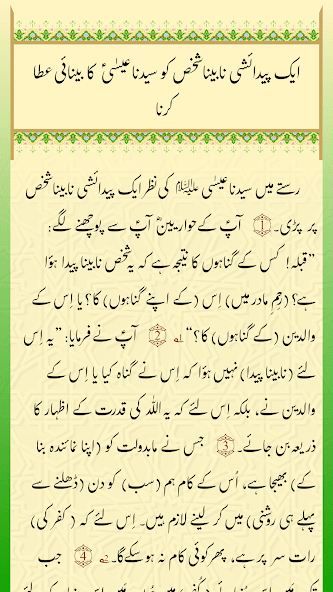 ایک پیدائشی نابینا شخص کو سیدنا عیسٰیؑ کا بینائی عطا
کرنا
رستے میں سیدنا عیسٰی ﷺ کی نظر ایک پیدائشی نابینا شخص
پر پڑی۔ 1 آپؑ کے حواریینؓ آپؑ سے پوچھنے لگے:
”قبلہ! کس کے گناہوں کا نتیجہ ہے کہ یہ شخص نابینا پیدا ہوٴا
ہے؟ (رحمِ مادر میں) اِس (کے اپنے گناہوں) کا؟ یا اِس کے
والدین (کے گناہوں) کا؟“ 2 آپؑ نے فرمایا: ”یہ اِس
لئے (نابینا پیدا) نہیں ہوٴا کہ اِس نے گناہ کیا یا اِس کے
والدین نے، بلکہ اِس لئے کہ یہ اللہ کی قدرت کے اظہار کا
ذریعہ بن جائے۔ 3 جس نے مابدولت کو (اپنا نمائندہ بنا
کے) بھیجا ہے، اُس کے کام ہم (سب) کو دن (ڈھلنے سے
پہلے ہی روشنی) میں کر لینے لازم ہیں۔ اِس لئے کہ (کفر کی)
رات سر پر ہے، پھر کوئی کام نہ ہو سکے گا۔ 4 جب